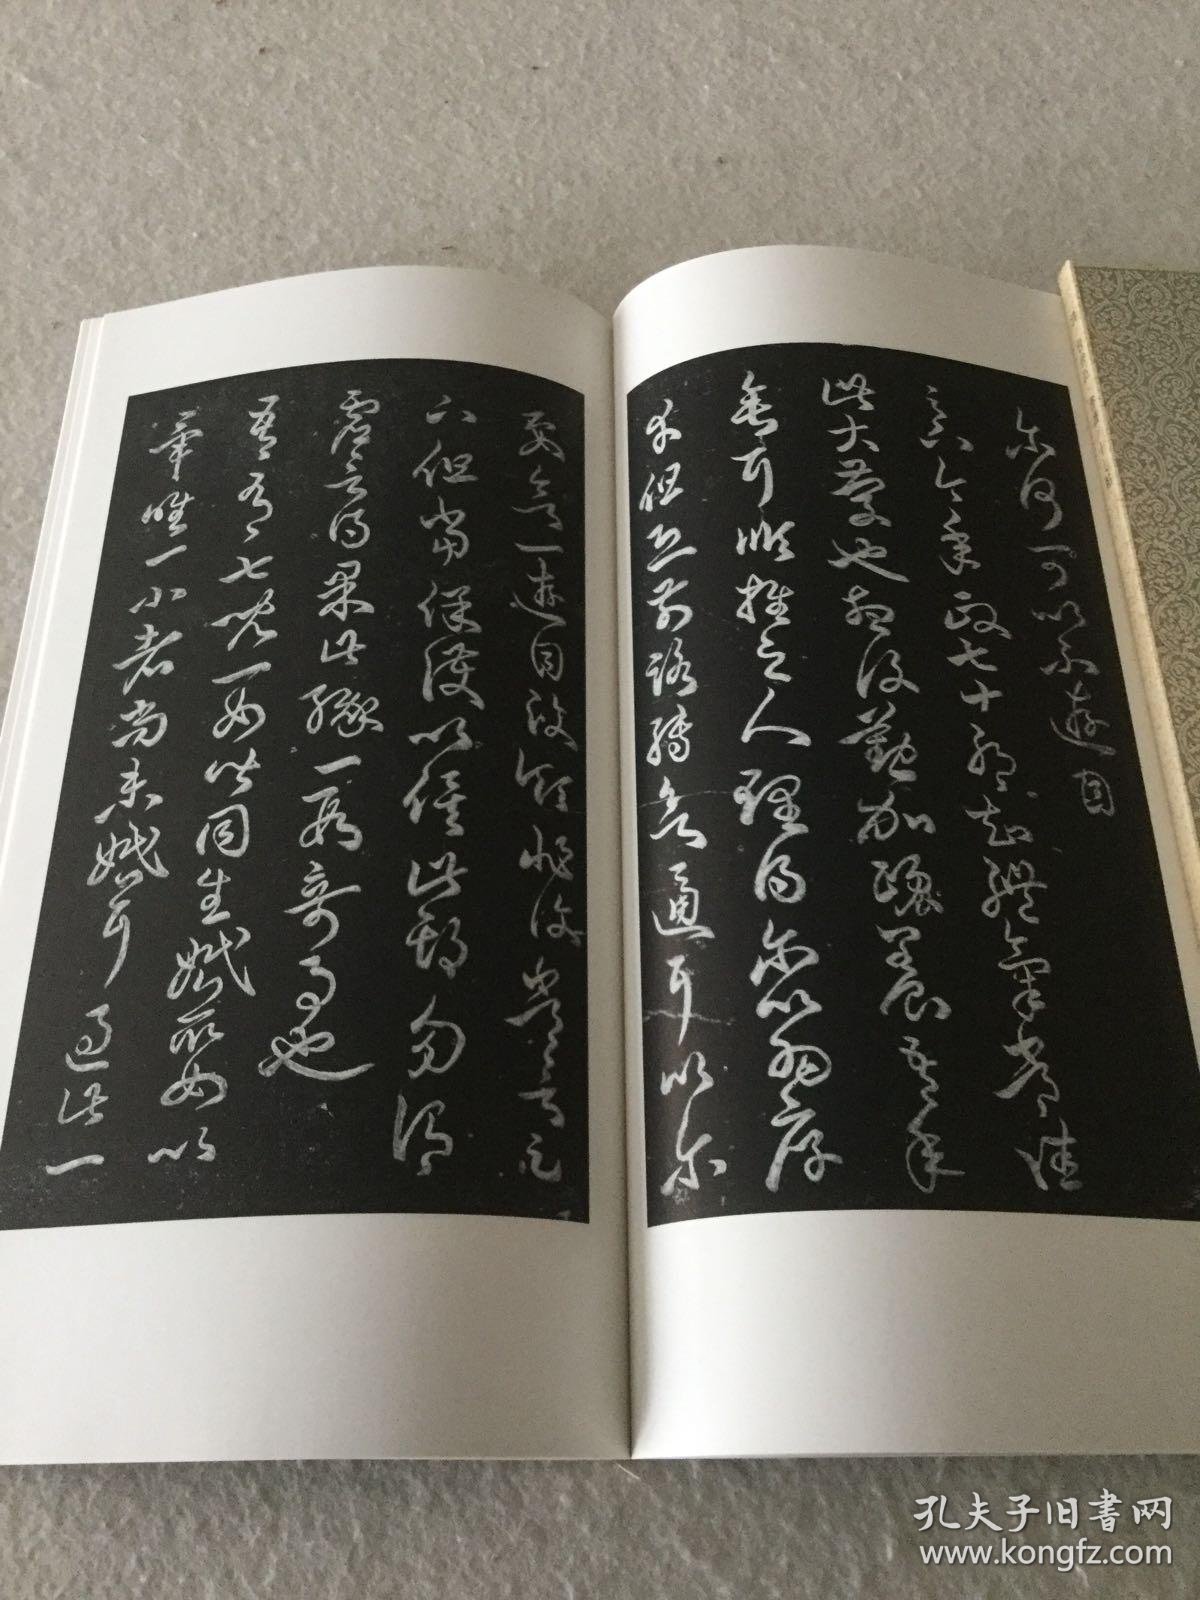 亦何可以不遊目
足下今年政七十耶知體氣常佳
此大慶也想復勤加頤養吾年
垂耳順推之人理得爾以為厚
幸但恐前路轉欲逼耳以爾
要欲一遊目汶領非復常言足
下但當保護以俟此期勿謂
虛言得果此緣一段奇事也
吾有七兒一女皆同生婚娶以
畢唯一小者尚未婚耳過此一
孔夫子旧书网
www.kongfz.com